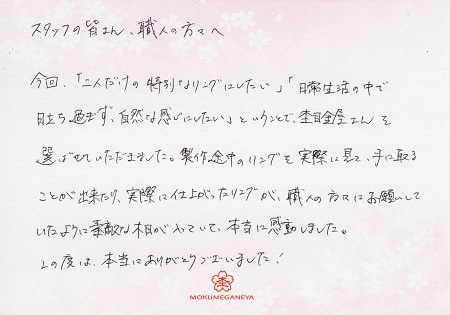 スタッフの皆さん、職人の方々へ
今回、「二人だけの特別なリングにしたい」「日常生活の中で
目立ち過ぎず、自然な感じにしたい」ということで、杢目金屋さんを
選ばせていただきました。製作途中のリングを実際に見て、手に取る
ことが出来たり、実際に仕上がったリングが、職人の方々にお願いして
いたように素敵な木目が入っていて、本当に感動しました。
この度は、本当にありがとうございました!
杢
MOKUMEGANEYA